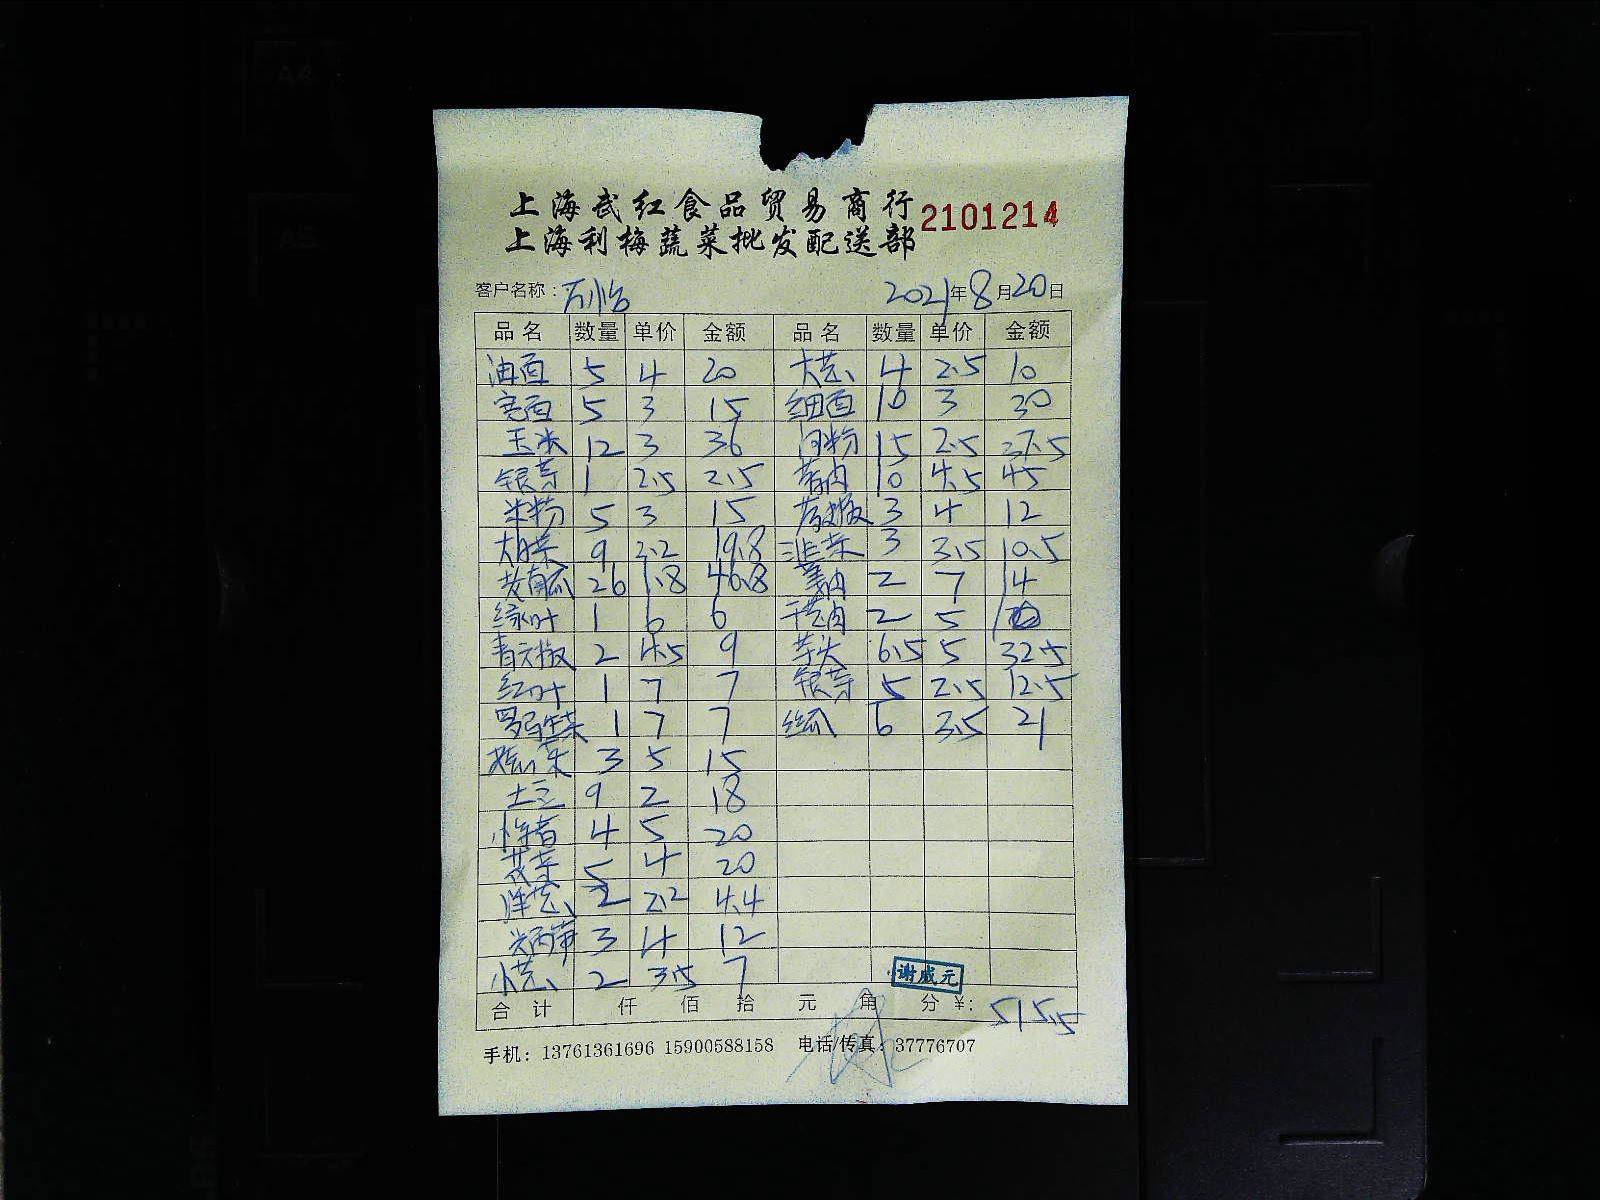 上海武红食品贸易商行
上海利梅蔬菜批发配送部 2101214
客户名称: 2021年8月20日
品名 数量 单价 金额 品名 数量 单价 金额
油面 5 4 20 大葱 4 2.5 10
宽面 5 3 15 细面 10 3 30
玉米 12 3 36 河粉 15 2.5 37.5
银芽 1 2.5 2.5 10 4.5 45
米粉 5 3 15 3 4 12
9 2.2 19.8 韭菜 3 3.5 10.5
黄南瓜 26 1.8 46.8 姜肉 2 7 14
绿叶 1 6 6 干葱肉 2 5 10
青元椒 2 4.5 9 芋头 6.5 5 32.5
红叶 1 7 7 银芽 5 2.5 12.5
罗马生菜 1 7 7 丝瓜 6 3.5 21
3 5 15
土豆 9 2 18
4 5 20
5 4 20
洋葱 2 2.2 4.4
3 4 12
小葱 2 3.5 7
谢咸元
合计 仟 佰 拾 元 角 分 ¥: 515.5
手机: 13761361696 15900588158 电话/传真: 37776707